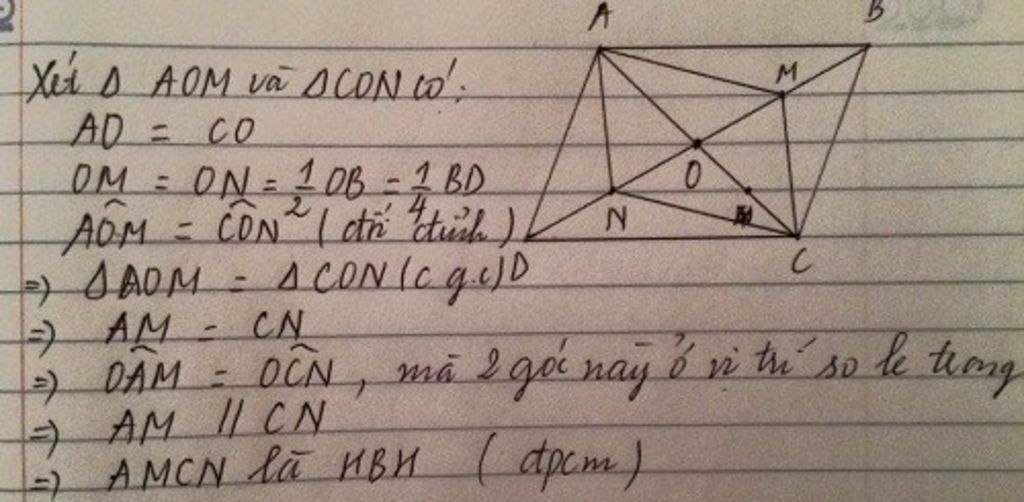 A B
Xét Δ AOM và ΔCON có:
M
AO = CO
OM = ON = 1/2 OB = 1/4 BD
O
N
AÔM = CÔN (đối đỉnh)
C
=) ΔAOM = ΔCON (c g.c) D
=) AM = CN
=) OÂM = OĈN, mà 2 góc này ở vị trí so le trong
=) AM // CN
=) AMCN là HBH (đpcm)